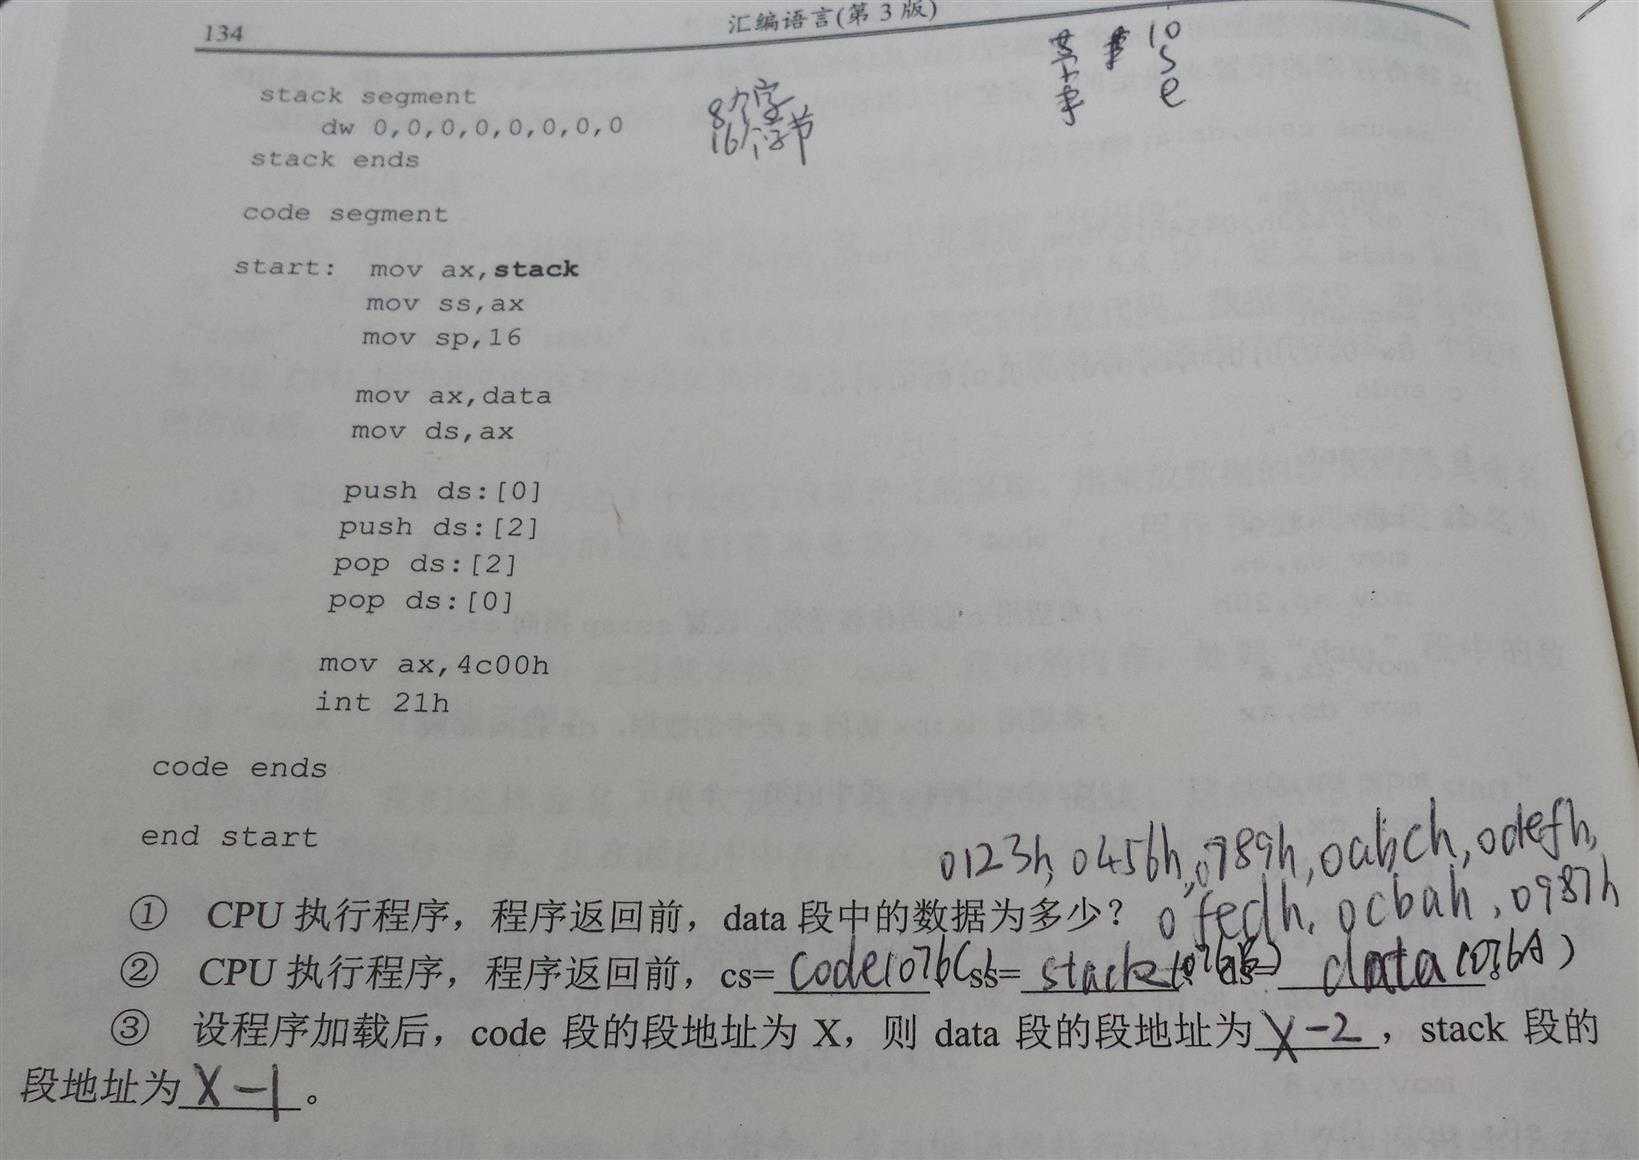 134
汇编语言(第 3 版)
10
s
e
stack segment
8个字
dw 0,0,0,0,0,0,0,0
16个字节
stack ends
code segment
start: mov ax,stack
mov ss,ax
mov sp,16
mov ax,data
mov ds,ax
push ds:[0]
push ds:[2]
pop ds:[2]
pop ds:[0]
mov ax,4c00h
int 21h
code ends
end start
0123h, 0456h, 0789h, 0abch, 0defh,
① CPU 执行程序，程序返回前，data 段中的数据为多少？ 0fedh, 0cbah, 0987h
② CPU 执行程序，程序返回前，cs= code(076C) ss= stack(076B) ds= data(076A)
③ 设程序加载后，code 段的段地址为 X，则 data 段的段地址为 X-2 ，stack 段的
段地址为 X-1 。